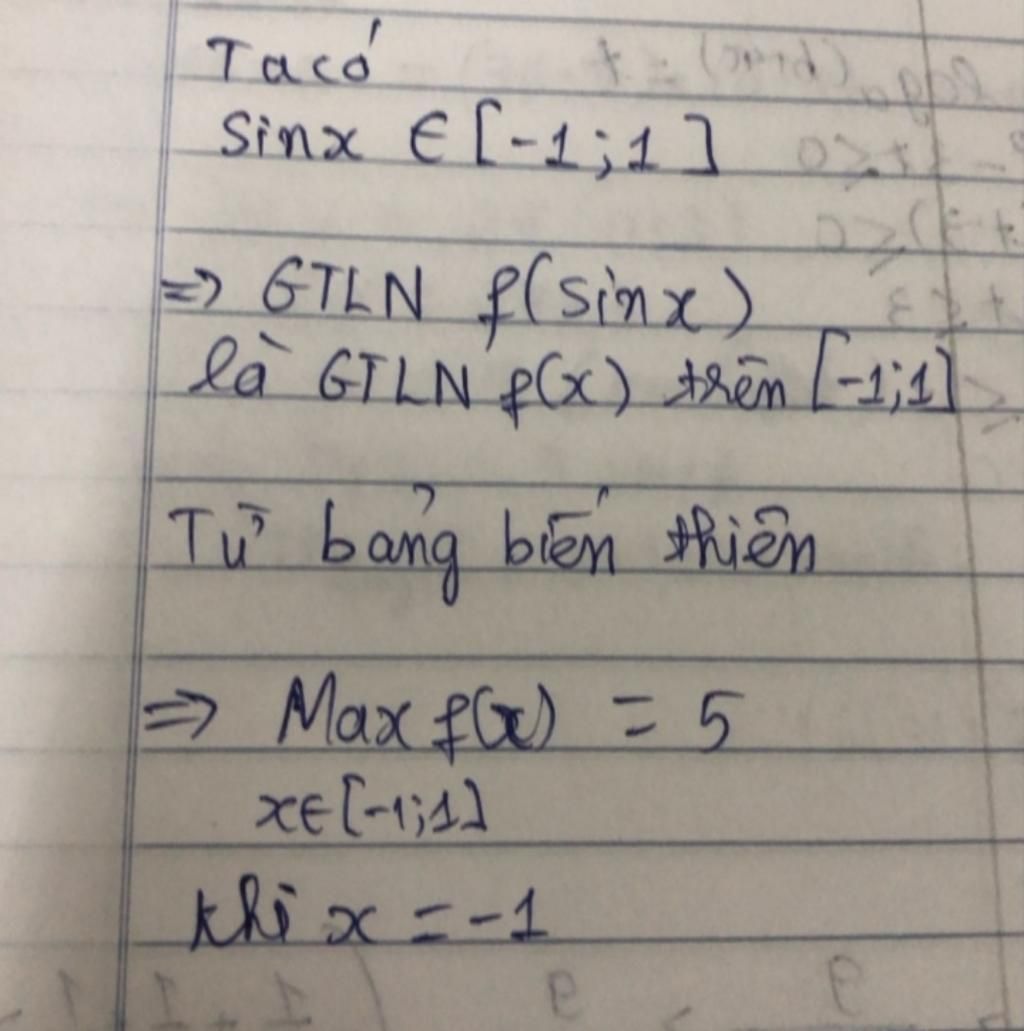 Ta có
sinx ∈ [-1;1]
=> GTLN f(sinx)
là GTLN f(x) trên [-1;1]
Từ bảng biến thiên
=> Max f(x) = 5
x∈[-1;1]
khi x = -1